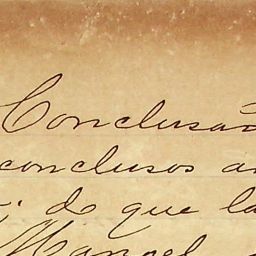 Conclusão
conclusos a
; do que la
Manoel